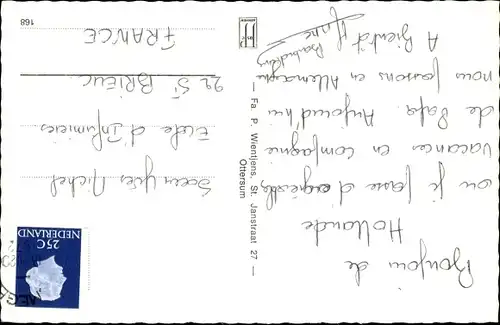 Bonjour de
Hollande
où je passe d'agréables
vacances en compagnie
de Papa. Aujourd'hui
nous passons en Allemagne
A Bientôt
Fa P. Wientjens, St. Janstraat 27 —
Ottersum
NEDERLAND
25C
Soeur Yves Michel
Ecole d'Infirmières
22 St BRIEUC
FRANCE
168